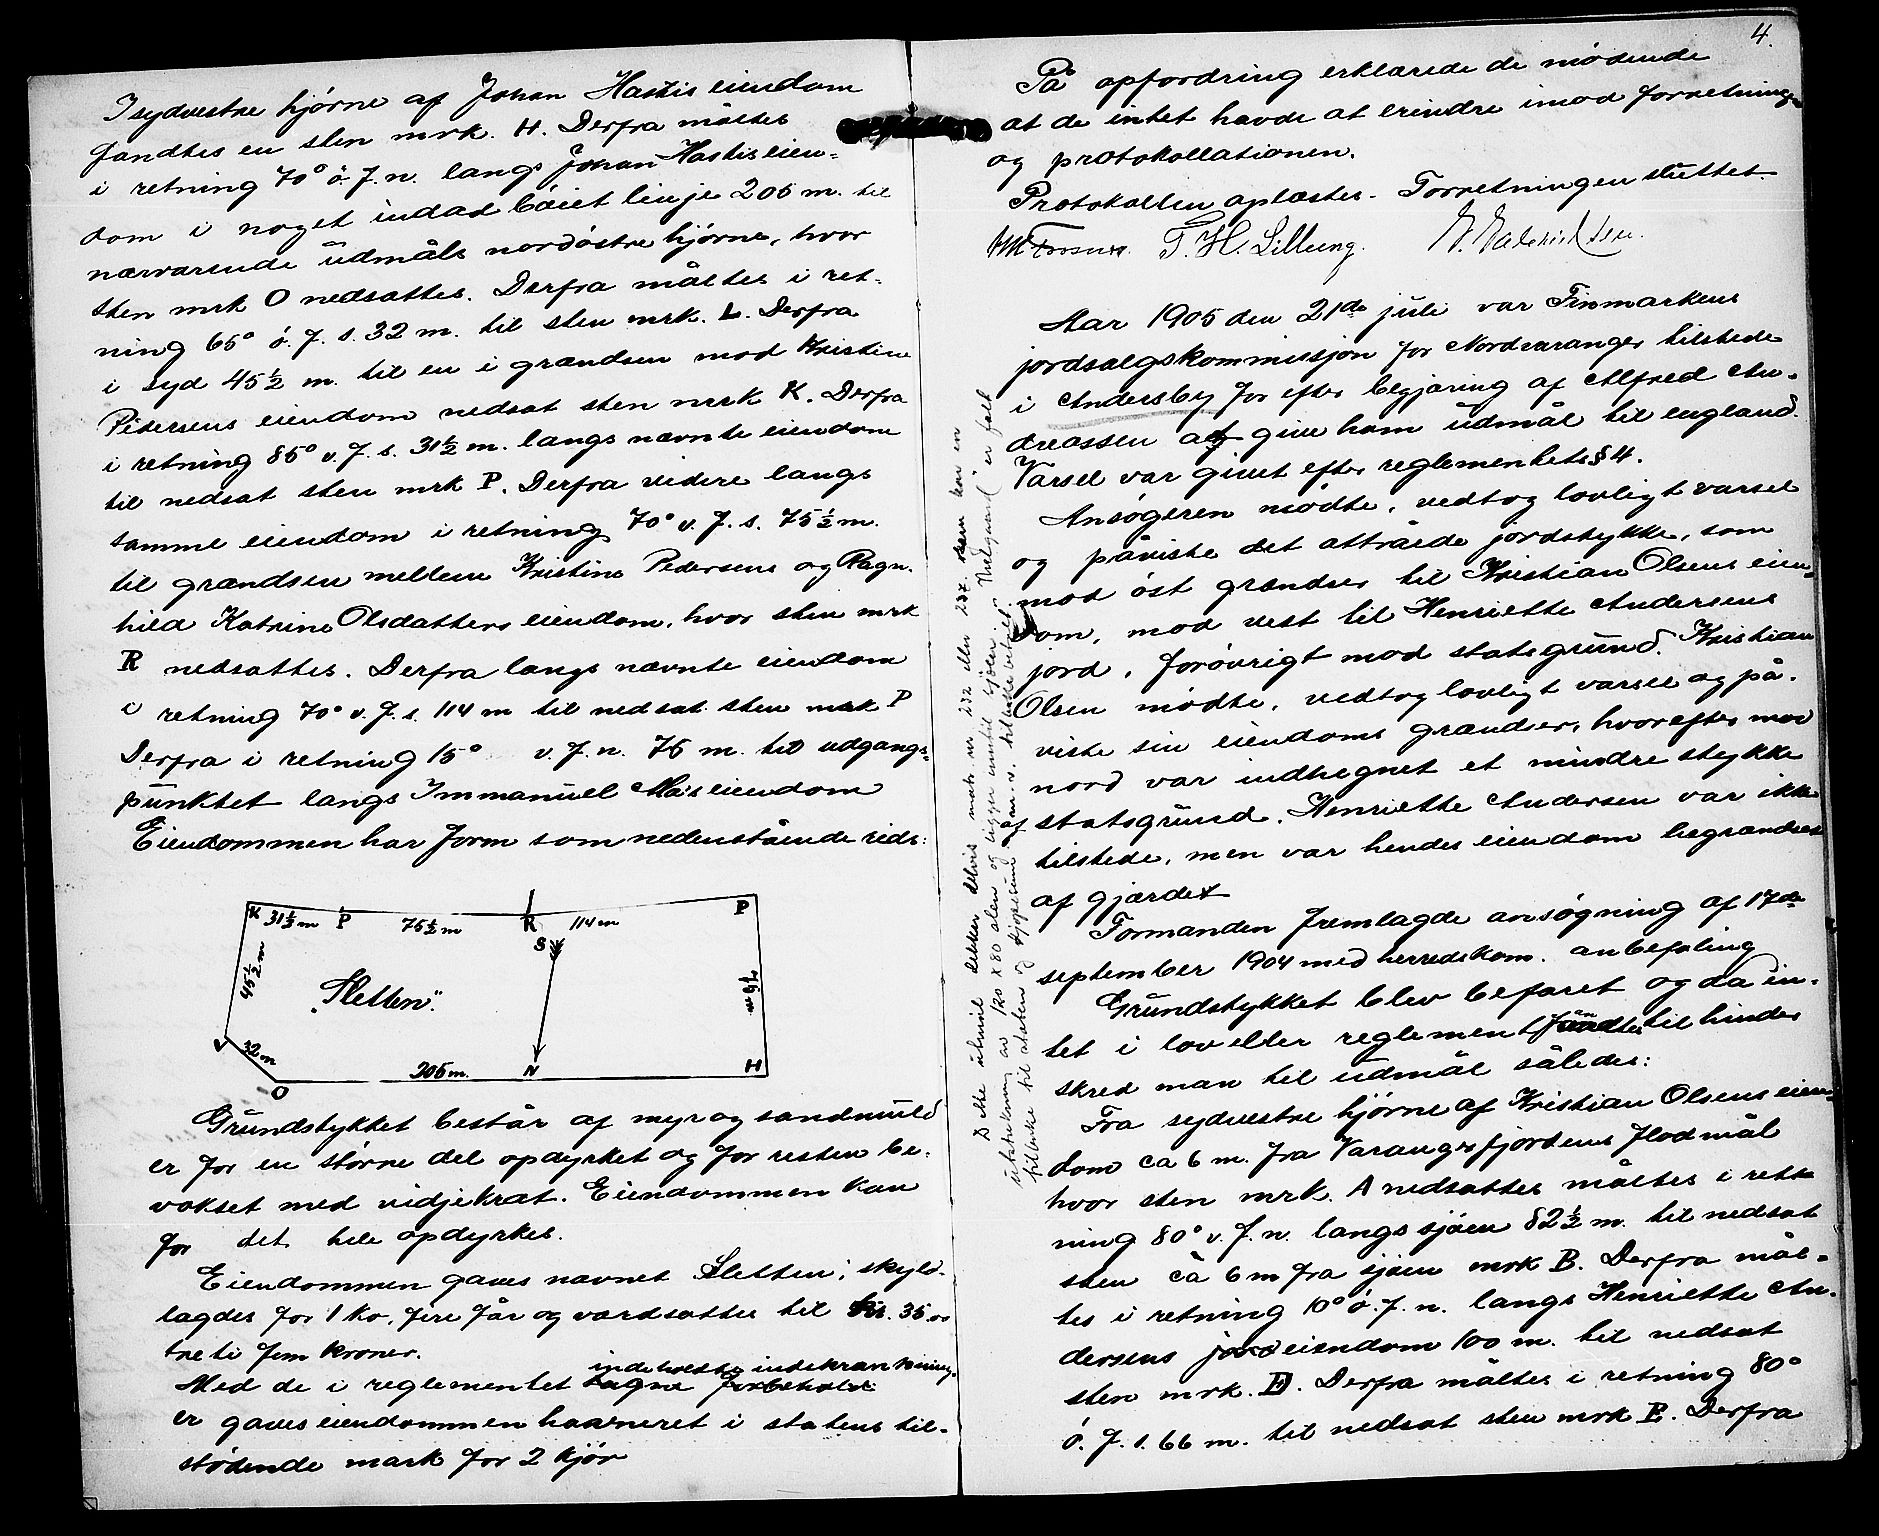 I sydvestre hjørne af Johan Hastis eiendom
fandtes en sten mrk. H. Derfra måltes
i retning 70° ø. f. n. langs Johan Hastis eien-
dom i noget indad bøiet linje 206 m. til
nærværende udmåls nordøstre hjørne, hvor
sten mrk O nedsattes. Derfra måltes i ret-
ning 65° ø. f. s. 32 m. til sten mrk. L. Derfra
i syd 45½ m. til en i grændsen mod Kristine
Pedersens eiendom nedsat sten mrk K. Derfra
i retning 85° v. f. s. 31½ m. langs nævnte eiendom
til nedsat sten mrk P. Derfra videre langs
samme eiendom i retning 70° v. f. s. 75½ m.
til grændsen mellem Kristine Pedersens og Ragn-
hild Katrine Olsdatters eiendom, hvor sten mrk
R nedsattes. Derfra langs nævnte eiendom
i retning 70° v. f. s. 114 m til nedsat sten mrk P
Derfra i retning 15° v. f. n. 76 m. til udgangs-
punktet langs Immanuel Mas eiendom
Eiendommen har form som nedenstående rids:
K 31½ m P 75½ m R 114 m P
S
45½ m
"Sletten".
76 m
32 m
O 206 m. N H
Grundstykket består af myr og sandmuld
er for en større del opdyrket og for resten be-
vokset med vidjekrat. Eiendommen kan
for det hele opdyrkes.
Eiendommen gaves navnet Sletten, skyld-
lagdes for 1 ko, fire får og værdsattes til kr. 35.00
treti fem kroner.
indeholdte indskrænkning-
Med de i reglementet tagne forbehold
er gaves eiendommen havneret i statens til-
stødende mark for 2 kjør
4.
På opfordring erklærede de mødende
at de intet havde at erindre imod forretningen
og protokollationen.
Protokollen oplæstes. Forretningen sluttet.
P. H. Lillung.
Aar 1905 den 21de juli var Finmarkens
jordsalgskommissjon for Nordvaranger tilstede
i Andersby for efter begjæring af Alfred An-
dreassen at give ham udmål til england.
Varsel var givet efter reglementets § 4.
Ansøgeren mødte, vedtog lovligt varsel
og påviste det attråede jordstykke, som
mod øst grændser til Kristian Olsens eien-
dom, mod vest til Henriette Andersens
jord, forøvrigt mod statsgrund. Kristian
Olsen mødte, vedtog lovligt varsel og på-
viste sin eiendoms grændser, hvorefter mod
nord var indhegnet et mindre stykke
statsgrund. Henriette Andersen var ikke
tilstede, men var hendes eiendom begrændset
af gjærdet
Formanden fremlagde ansøgning af 17de
september 1904 med herredskom. anbefaling
Grundstykket blev befaret og da in-
tet i lov eller reglement fandtes til hinder
skred man til udmål således:
Fra sydvestre hjørne af Kristian Olsens eien-
dom ca 6 m. fra Varangerfjordens flodmål
hvor sten mrk. A nedsattes måltes i ret-
ning 80° v. f. n. langs sjøen 82½ m. til nedsat
sten ca 6 m fra sjøen mrk B. Derfra mål-
tes i retning 10° ø. f. n. langs Henriette An-
dersens jord eiendom 100 m. til nedsat
sten mrk. D. Derfra måltes i retning 80°
ø. f. s. 66 m. til nedsat sten mrk E. Derfra